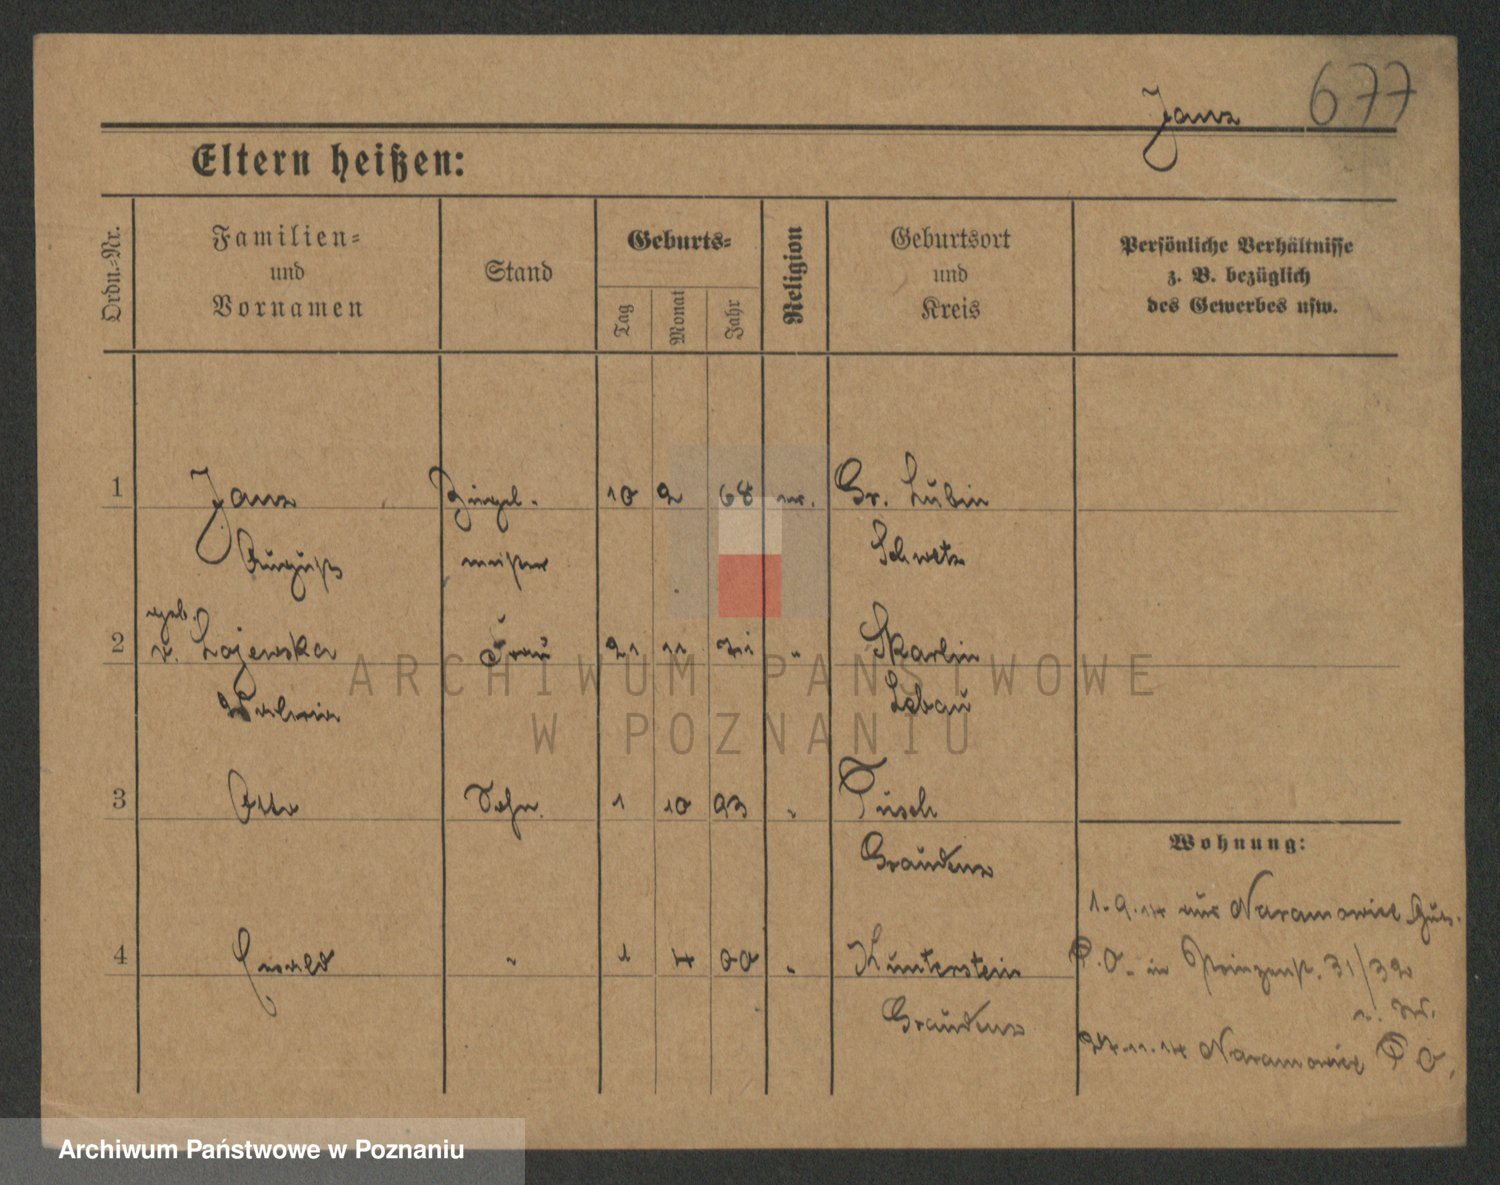 Janz 677
Eltern heißen:
Ordn.-Nr.
Familien-
und
Vornamen
Stand
Geburts-
Tag
Monat
Jahr
Religion
Geburtsort
und
Kreis
Persönliche Verhältnisse
z. B. bezüglich
des Gewerbes usw.
1 Janz Ziegel- 10 2 68 Gr. Lubin
August meister Schwetz
geb.
2 v. Lojewska Frau 21 11 71 " Skarlin
Löbau
3 Otto Sohn 1 10 93 " Tusch
Graudenz
4 Ewald " 1 4 00 " Kunterstein
Graudenz
Wohnung:
1.9.14 aus Naramowice
P.O. in Prinzenstr. 31/32
27.11.14 Naramowice P O.
ARCHIWUM PAŃSTWOWE
W POZNANIU
Archiwum Państwowe w Poznaniu